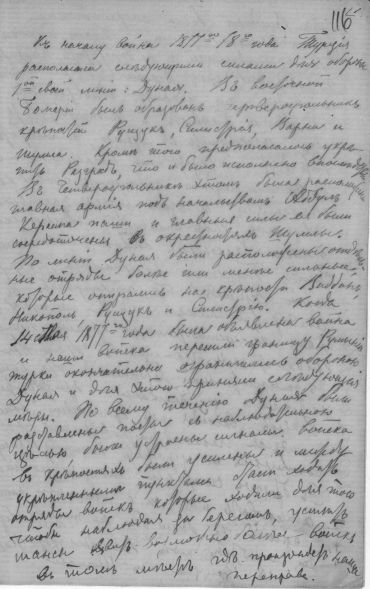 116
Къ началу войны 1877го/8го года Турція
располагала слѣдующими силами для обороны
1ой своей линіи: Дуная. Въ восточной
былъ образованъ четвероугольникъ
крѣпостей Рущукъ, Силистрія, Варна и
Шумла. Кромѣ того предполагалось укрѣ-
пить Разградъ, что и было исполнено
Въ четвероугольникѣ этомъ была расположена
главная армія подъ начальствомъ Абдулъ
Керима паши и главныя силы ея были
сосредоточены въ окрестностяхъ Шумлы.
По линіи Дуная были расположены отдѣль-
ные отряды болѣе или менѣе сильные,
которые опирались на крѣпости Виддинъ,
Никополь, Рущукъ и Силистрію. Когда
1877го года была объявлена война
и наши войска перешли границу Румыніи
турки окончательно ограничились обороною
Дуная и для этого приняли слѣдующія
мѣры. По всему теченію Дуная были
разставлены посты съ наблюдательною
цѣлью были устроены сигналы, войска
въ крѣпостяхъ были усилены и между
укрѣпленными пунктами были
отряды войскъ которые ходили для того
чтобы наблюдая за берегомъ,
возможно болѣе войскъ
въ томъ мѣстѣ гдѣ наша
переправа.